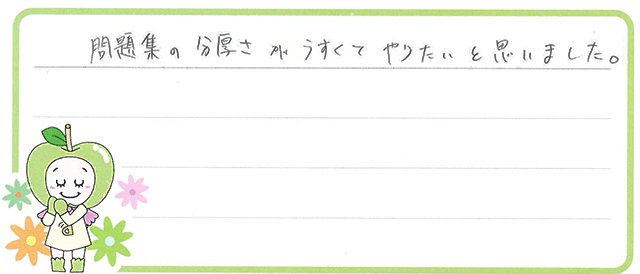 問題集の分厚さがうすくてやりたいと思いました。